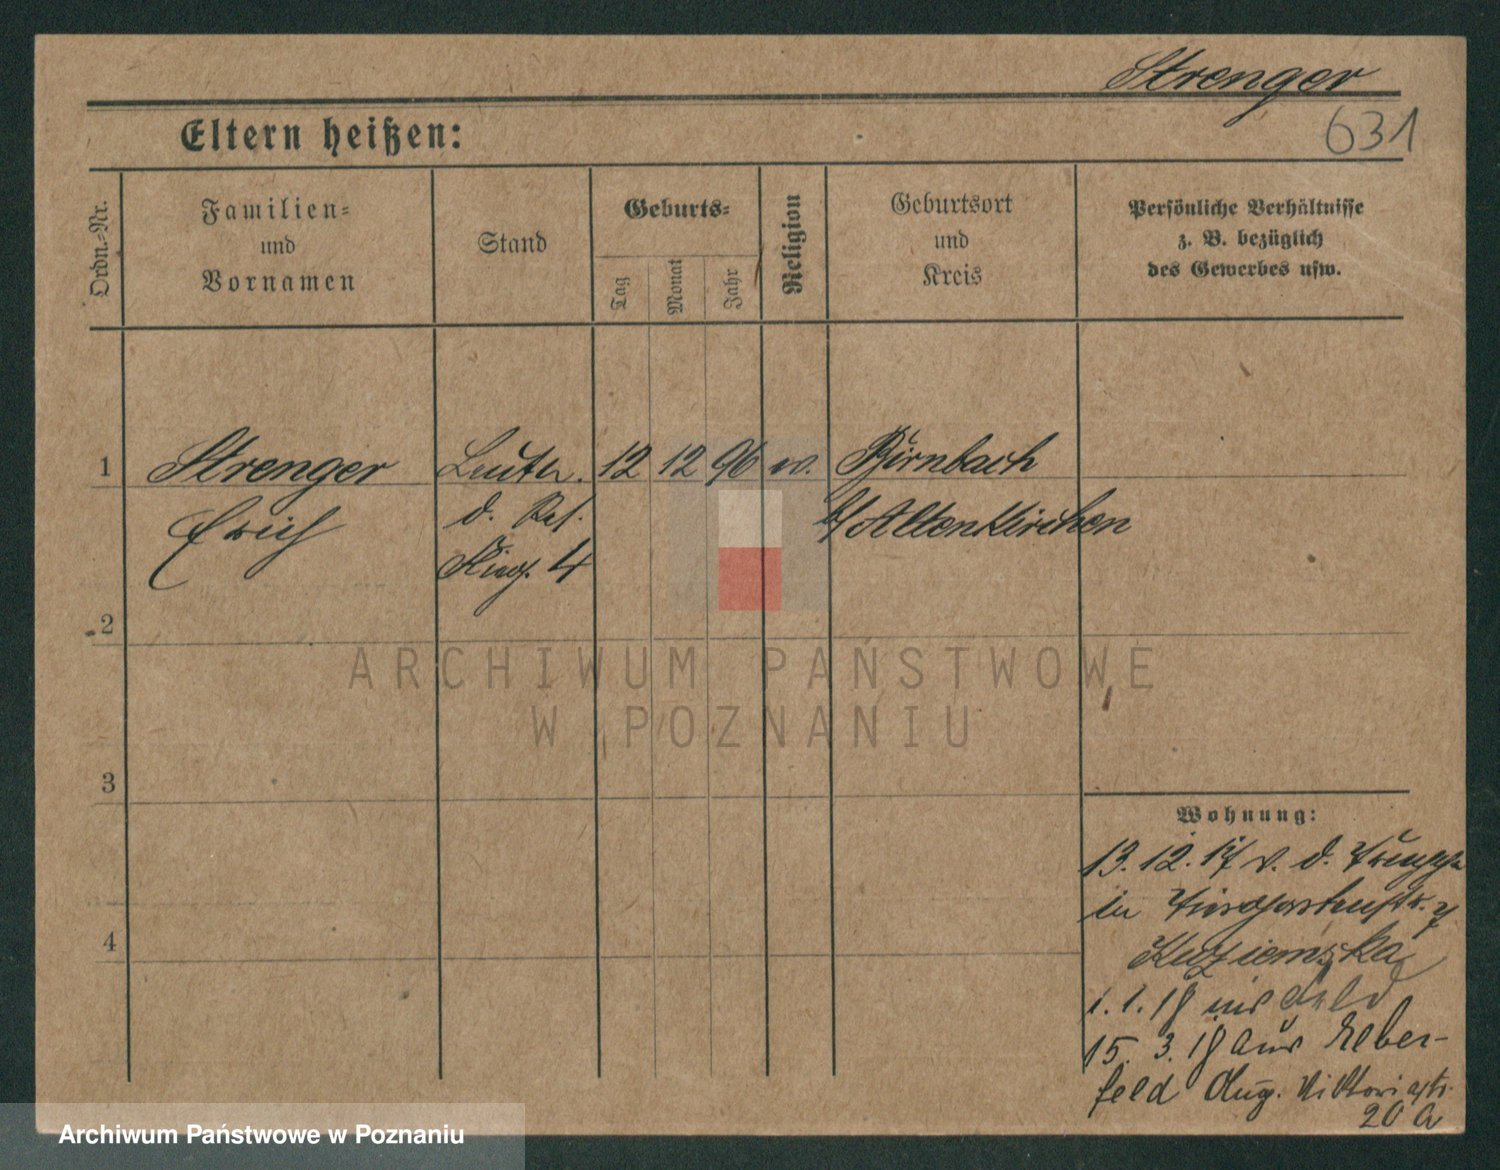 Strenger
631
Eltern heißen:
Ordn.-Nr.
Familien-
und
Vornamen
Stand
Geburts-
Tag
Monat
Jahr
Religion
Geburtsort
und
Kreis
Persönliche Verhältnisse
z. B. bezüglich
des Gewerbes usw.
1 Strenger Leutn. 12 12 96 ev. Birnbach
Erich d. Res. b/Altenkirchen
4
2
3
4
Wohnung:
13.12.17 v. d. Truppe
in
Kuziemska
1.1.18 ins Feld
15.3.18 aus Elber-
feld Aug. Viktoriastr.
20 a
ARCHIWUM PAŃSTWOWE
W POZNANIU
Archiwum Państwowe w Poznaniu